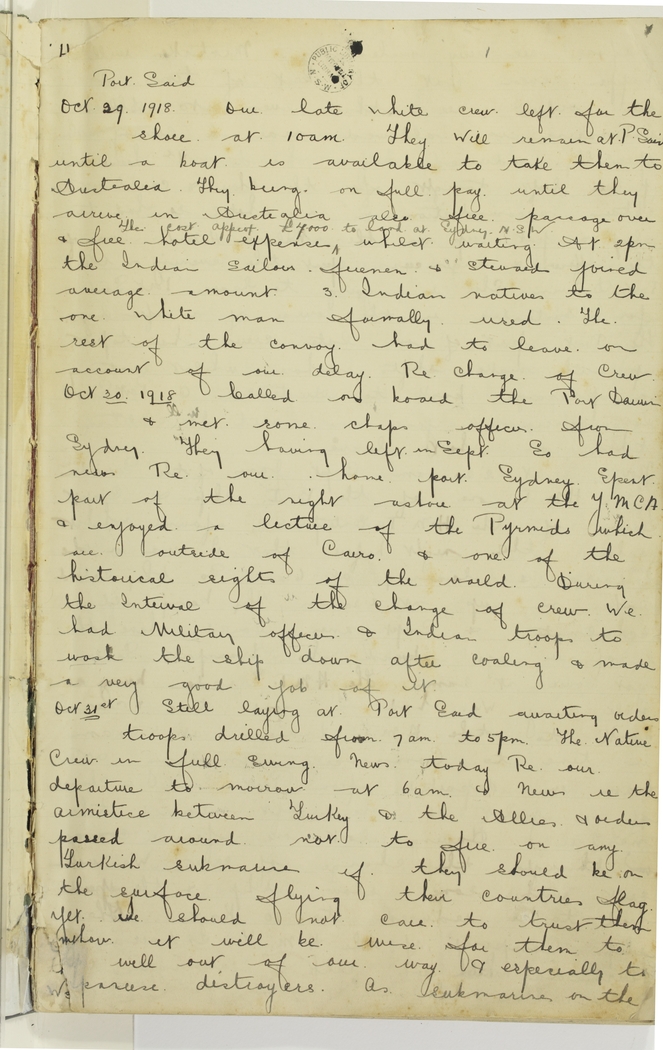 11
Port Said
Oct. 29. 1918. Our late white crew left for the
shore at 10am. They will remain at P. Said
until a boat is available to take them to
Australia. They being on full pay until they
arrive in Australia also free passage over
The cost approx. £4000 to land at Sydney N.S.W
& free hotel expense, whilst waiting At 2pm
the Indian Sailors, firemen & stewards joined
average amount 3 Indian natives to the
one white man formally used. The
rest of the convoy had to leave on
account of our delay Re change of Crew.
Oct 30. 1918 Called on board the Port Darwin
& met some chaps officers from
Sydney. They having left in Sept. So had
news Re our home port Sydney. Spent
part of the night ashore at the Y.M.C.A.
& enjoyed a lecture of the Pyrmids which
are outside of Cairo & one of the
historical sights of the world. During
the Interval of the change of crew. We
had Military officers & Indian troops to
wash the ship down after coaling & made
a very good job of it
Oct 31st Still laying at Port Said awaiting orders
troops drilled from 7am to 5pm. The Native
Crew in full swing. News today Re our
departure to morrow at 6am & News re the
armistice between Turkey & the Allies & orders
passed around not to fire on any
Turkish submarine if they should be on
the surface flying their countries flag.
Yet we should not care to trust them
it will be wise for them to
well out of our way & especially to
distroyers. As submarines on the